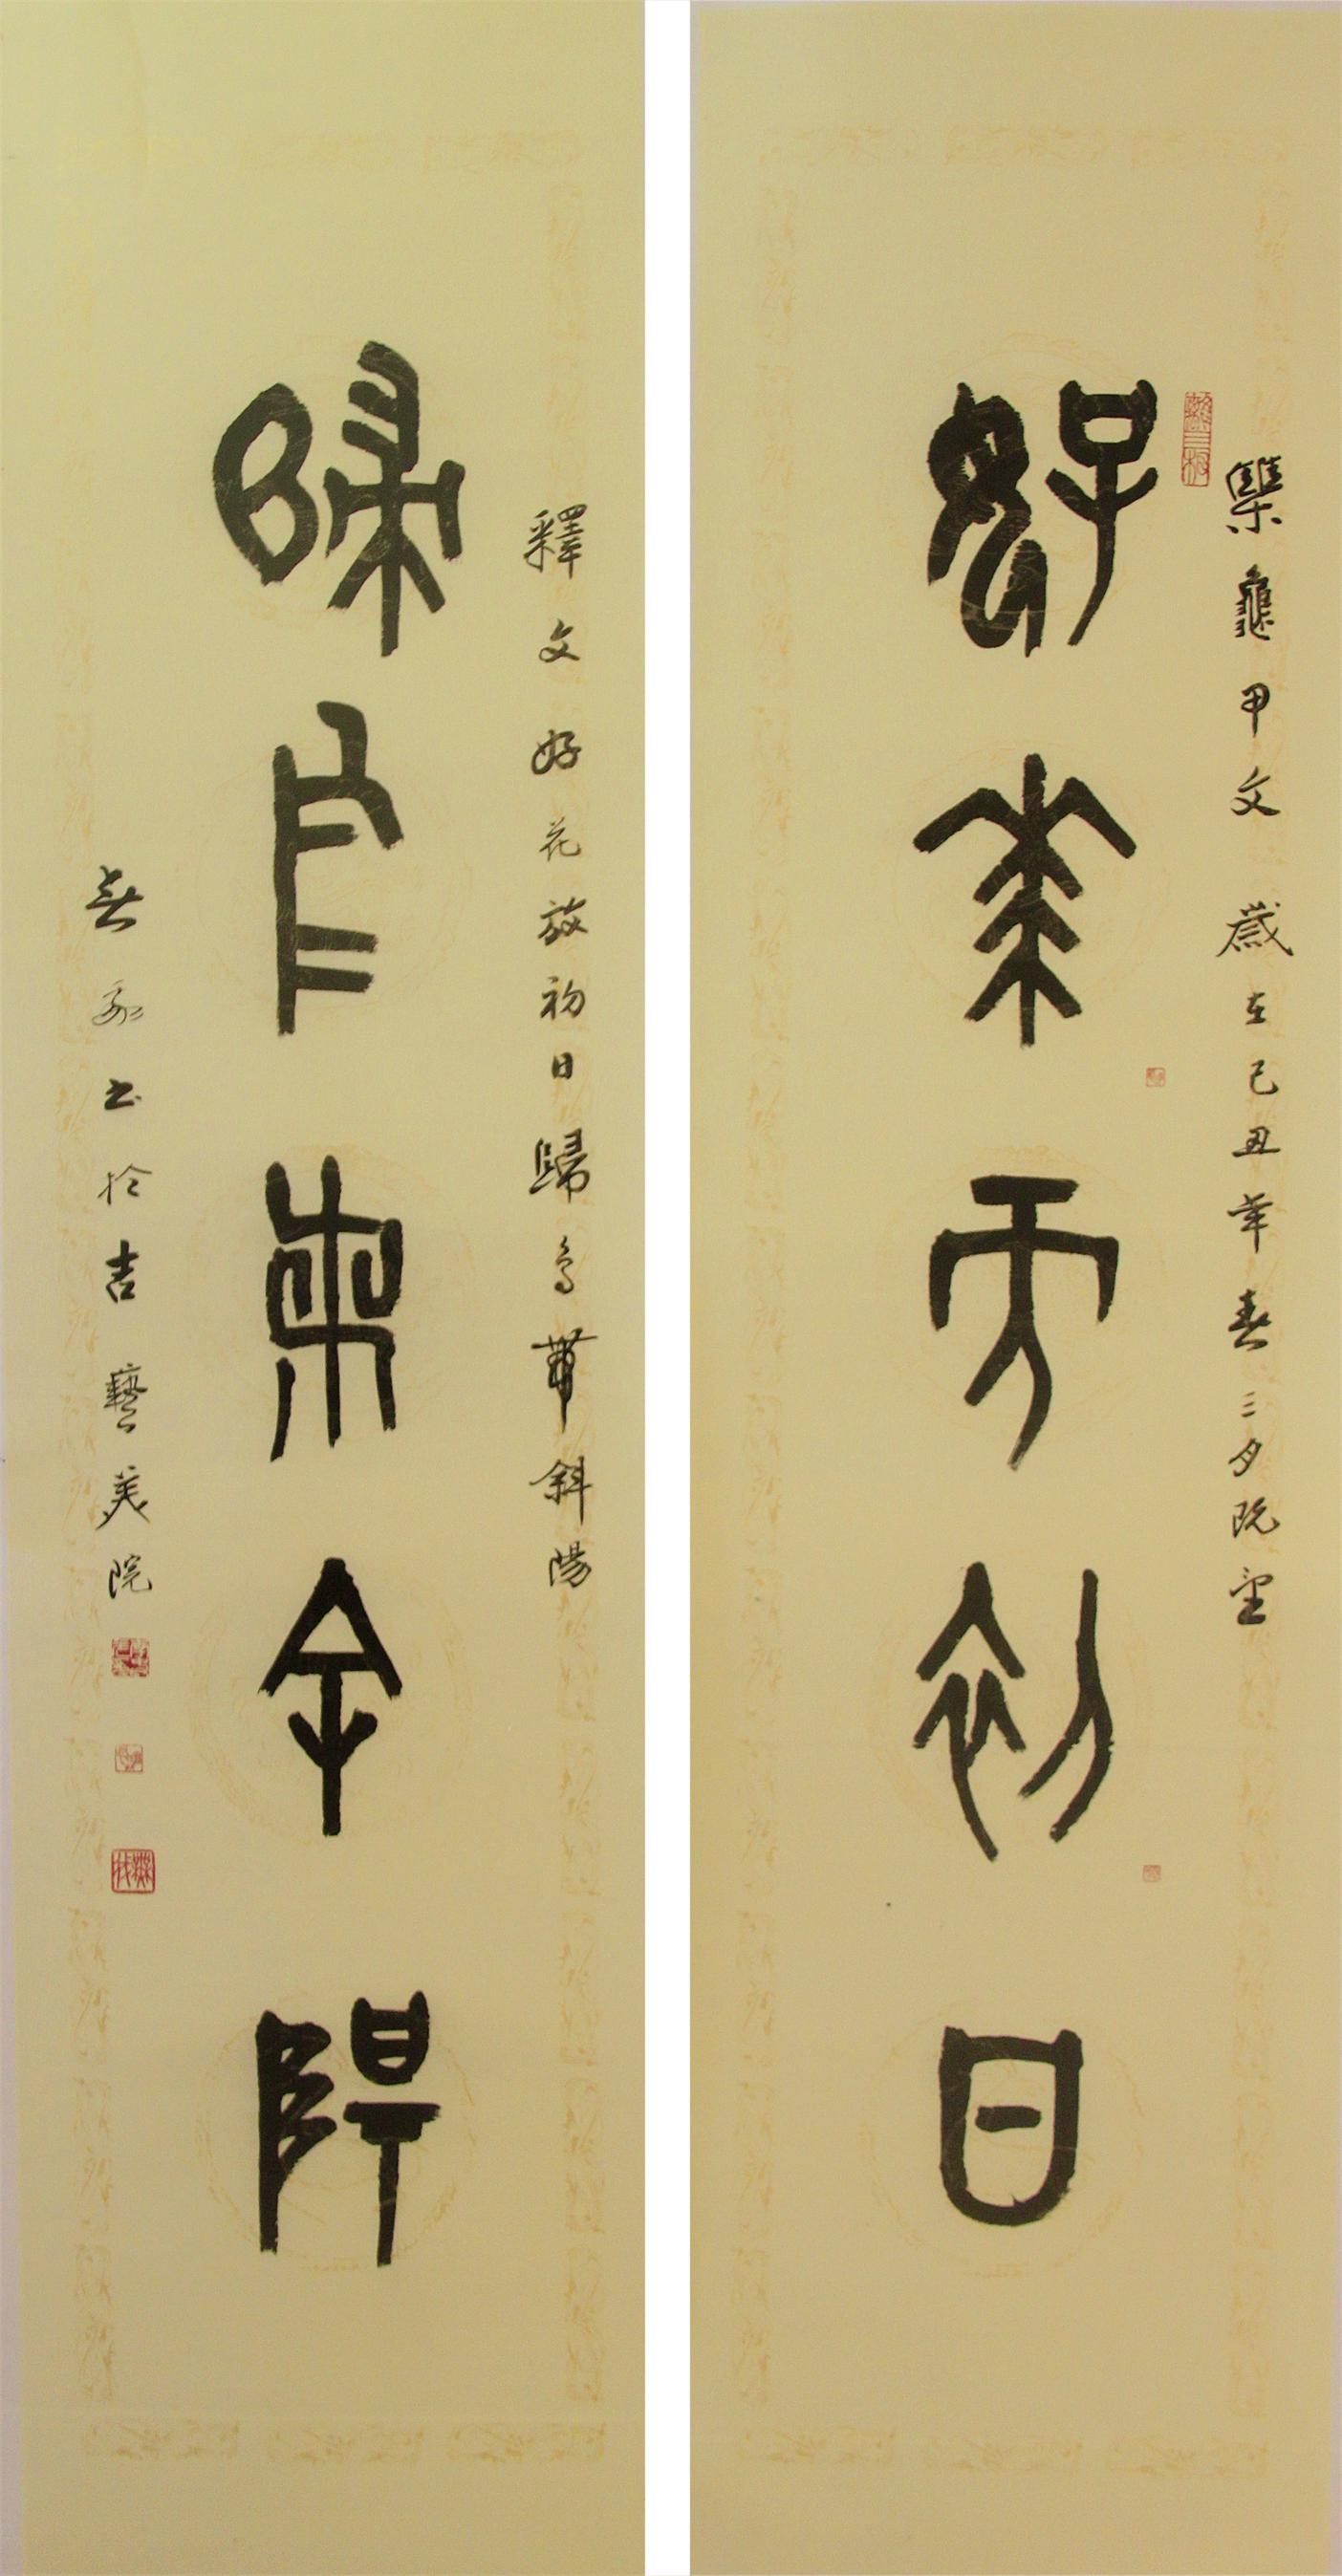 雧龜甲文歲在己丑年春三月既望
好花放初日
釋文好花放初日歸鳥帶斜陽
歸鳥帶斜陽
無我書於吉藝美院